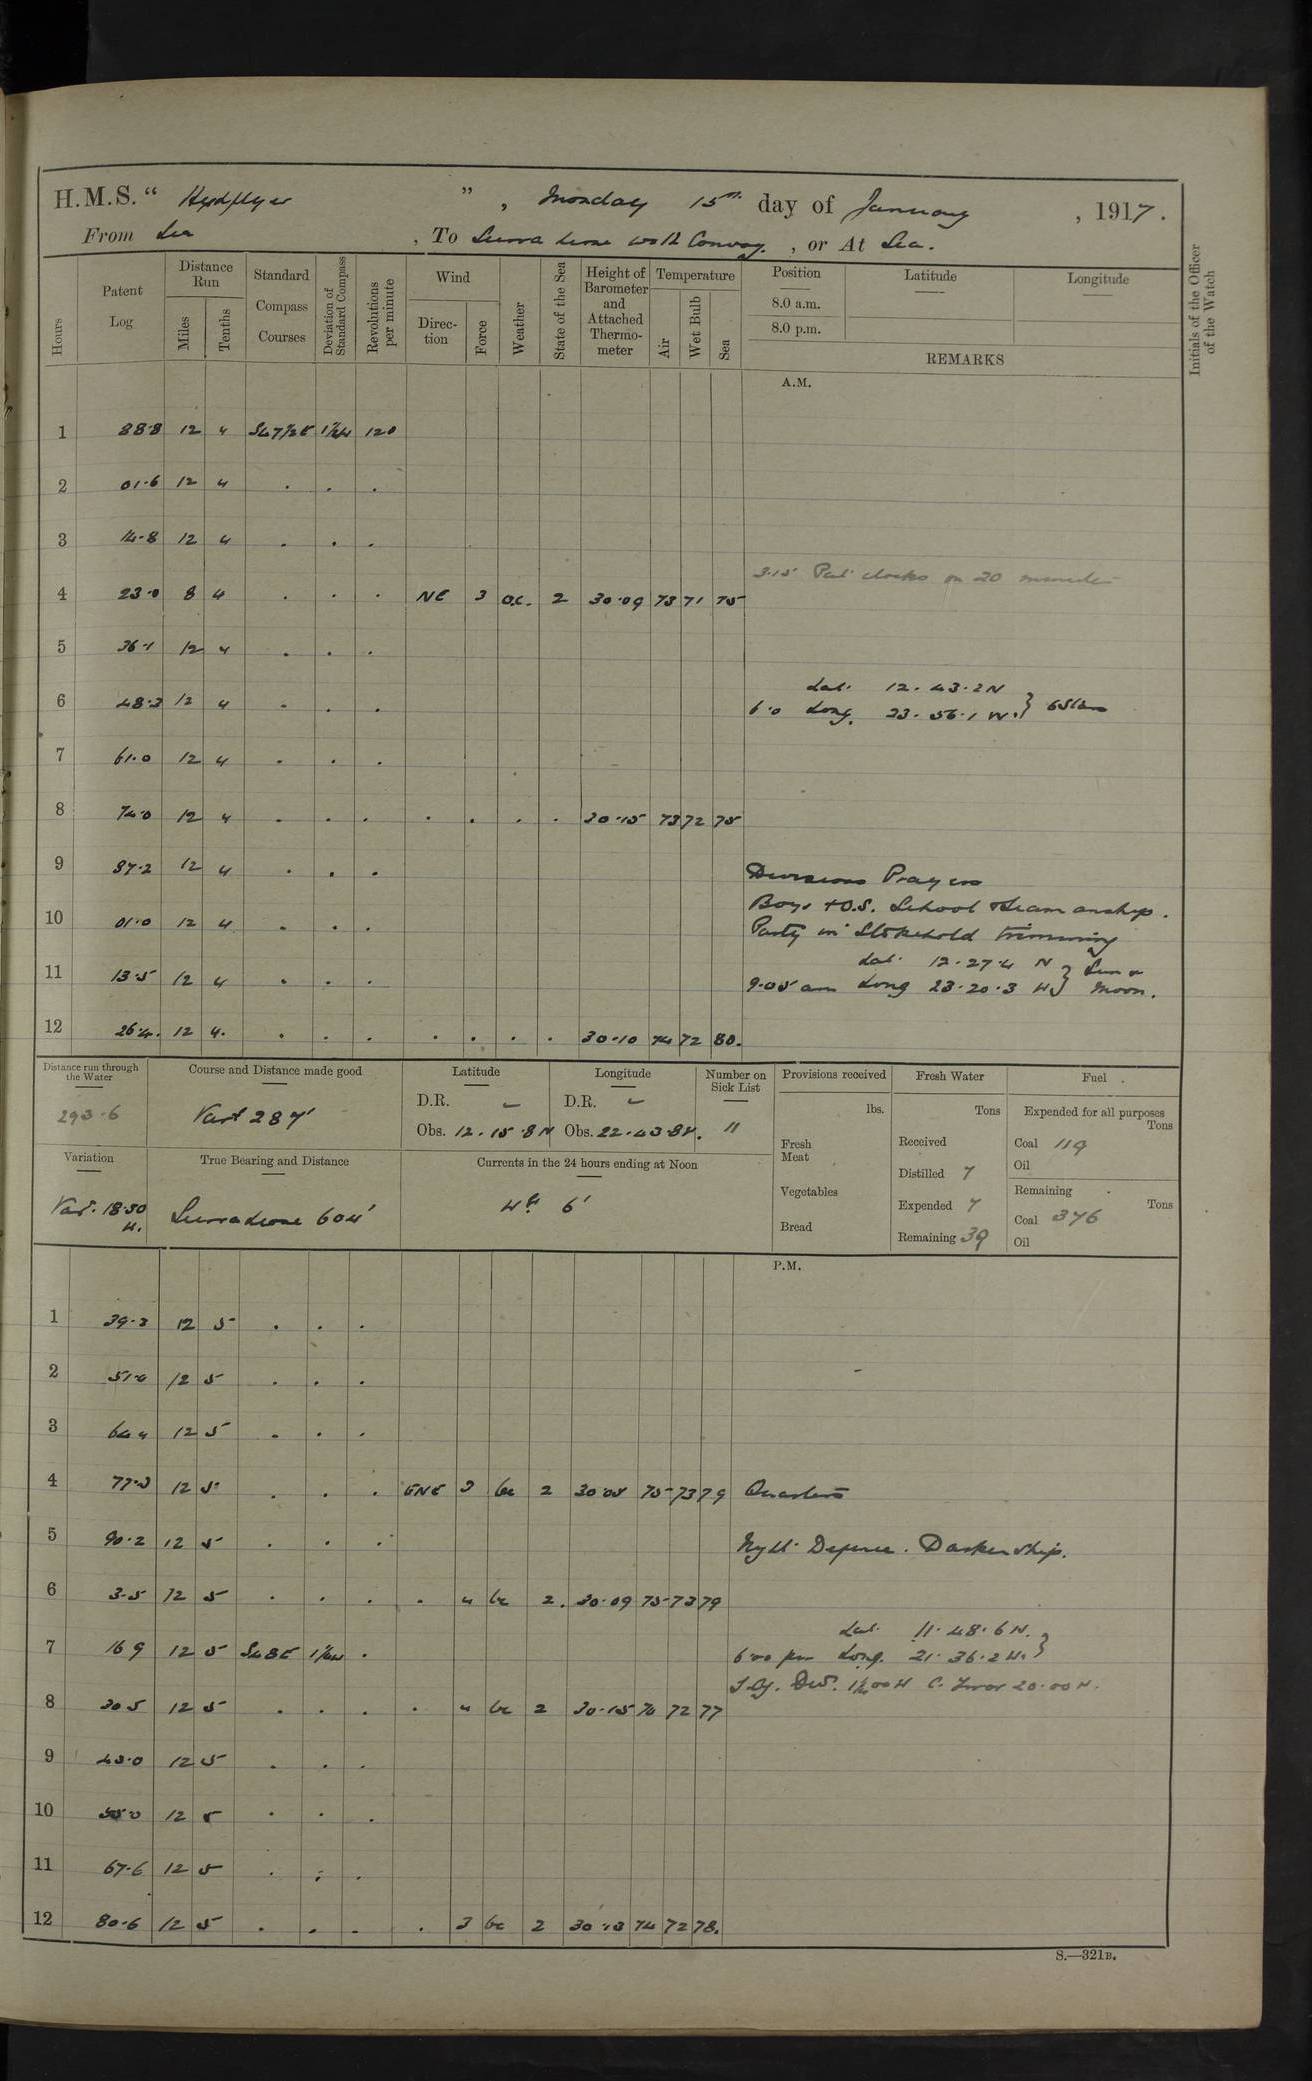 H.M.S. " Highflyer ", Monday 15th day of January, 1917.
From Sea, To Sierra Leone with Convoy., or At Sea.
Hours Patent Log Distance Run Miles Tenths Standard Compass Courses Deviation of Standard Compass Revolutions per minute Wind Direction Force Weather State of the Sea Height of Barometer and Attached Thermometer Temperature Air Wet Bulb Sea Position Latitude Longitude Initials of the Officer of the Watch
8.0 a.m.
8.0 p.m.
REMARKS
A.M.
1 88.8 12 4 120
2 01.6 12 4 . . .
3 14.8 12 4 . . .
3.15 Put clocks on 20 minutes
4 23.0 8 4 . . . NE 3 o.c. 2 30.09 73 71 75
5 36.1 12 4 . . .
Lat. 12.43.2 N
6 48.3 12 4 . . . 6.0 Long. 23.56.1 W. } 6 Stars
7 61.0 12 4 . . .
8 74.0 12 4 . . . . . . . 30.15 73 72 75
9 87.2 12 4 . . . Divisions Prayers
Boys + O.S. School & Seamanship.
10 01.0 12 4 . . . Party in Stokehold trimming
Lat. 12.27.4 N } Sun &
11 13.5 12 4 . . . 9.05 am Long 23.20.3 W } Moon.
12 26.4. 12 4. . . . . . . . 30.10 74 72 80.
Distance run through the Water Course and Distance made good Latitude Longitude Number on Sick List Provisions received Fresh Water Fuel
293.6 287' D.R. – D.R. – 11 lbs. Tons Expended for all purposes Tons
Obs. 12.15.8 N Obs. 22.43.8 W. Fresh Meat Received Coal 119
Oil
Variation True Bearing and Distance Currents in the 24 hours ending at Noon Distilled 7
Vegetables Remaining Tons
Var. 18.50 W. Sierra Leone 604' 6' Expended 7 Coal 376
Bread Remaining 39 Oil
P.M.
1 39.3 12 5 . . .
2 51.6 12 5 . . .
3 64 4 12 5 . . .
4 77.3 12 5 . . . ENE 3 bc 2 30.05 75 73 79 Quarters
5 90.2 12 5 . . . Night Defence. Darken ship.
6 3.5 12 5 . . . . 4 bc 2. 30.09 75 73 79
Lat. 11.48.6 N. }
7 16 9 12 5 S48E . 6.00 pm Long. 21.36.2 W. }
8 30 5 12 5 . . . . 4 bc 2 30.15 76 72 77
9 43.0 12 5 . . .
10 55 0 12 5 . . .
11 67.6 12 5 . . .
12 80.6 12 5 . . . . 3 bc 2 30.13 74 72 78.
S.—321B.